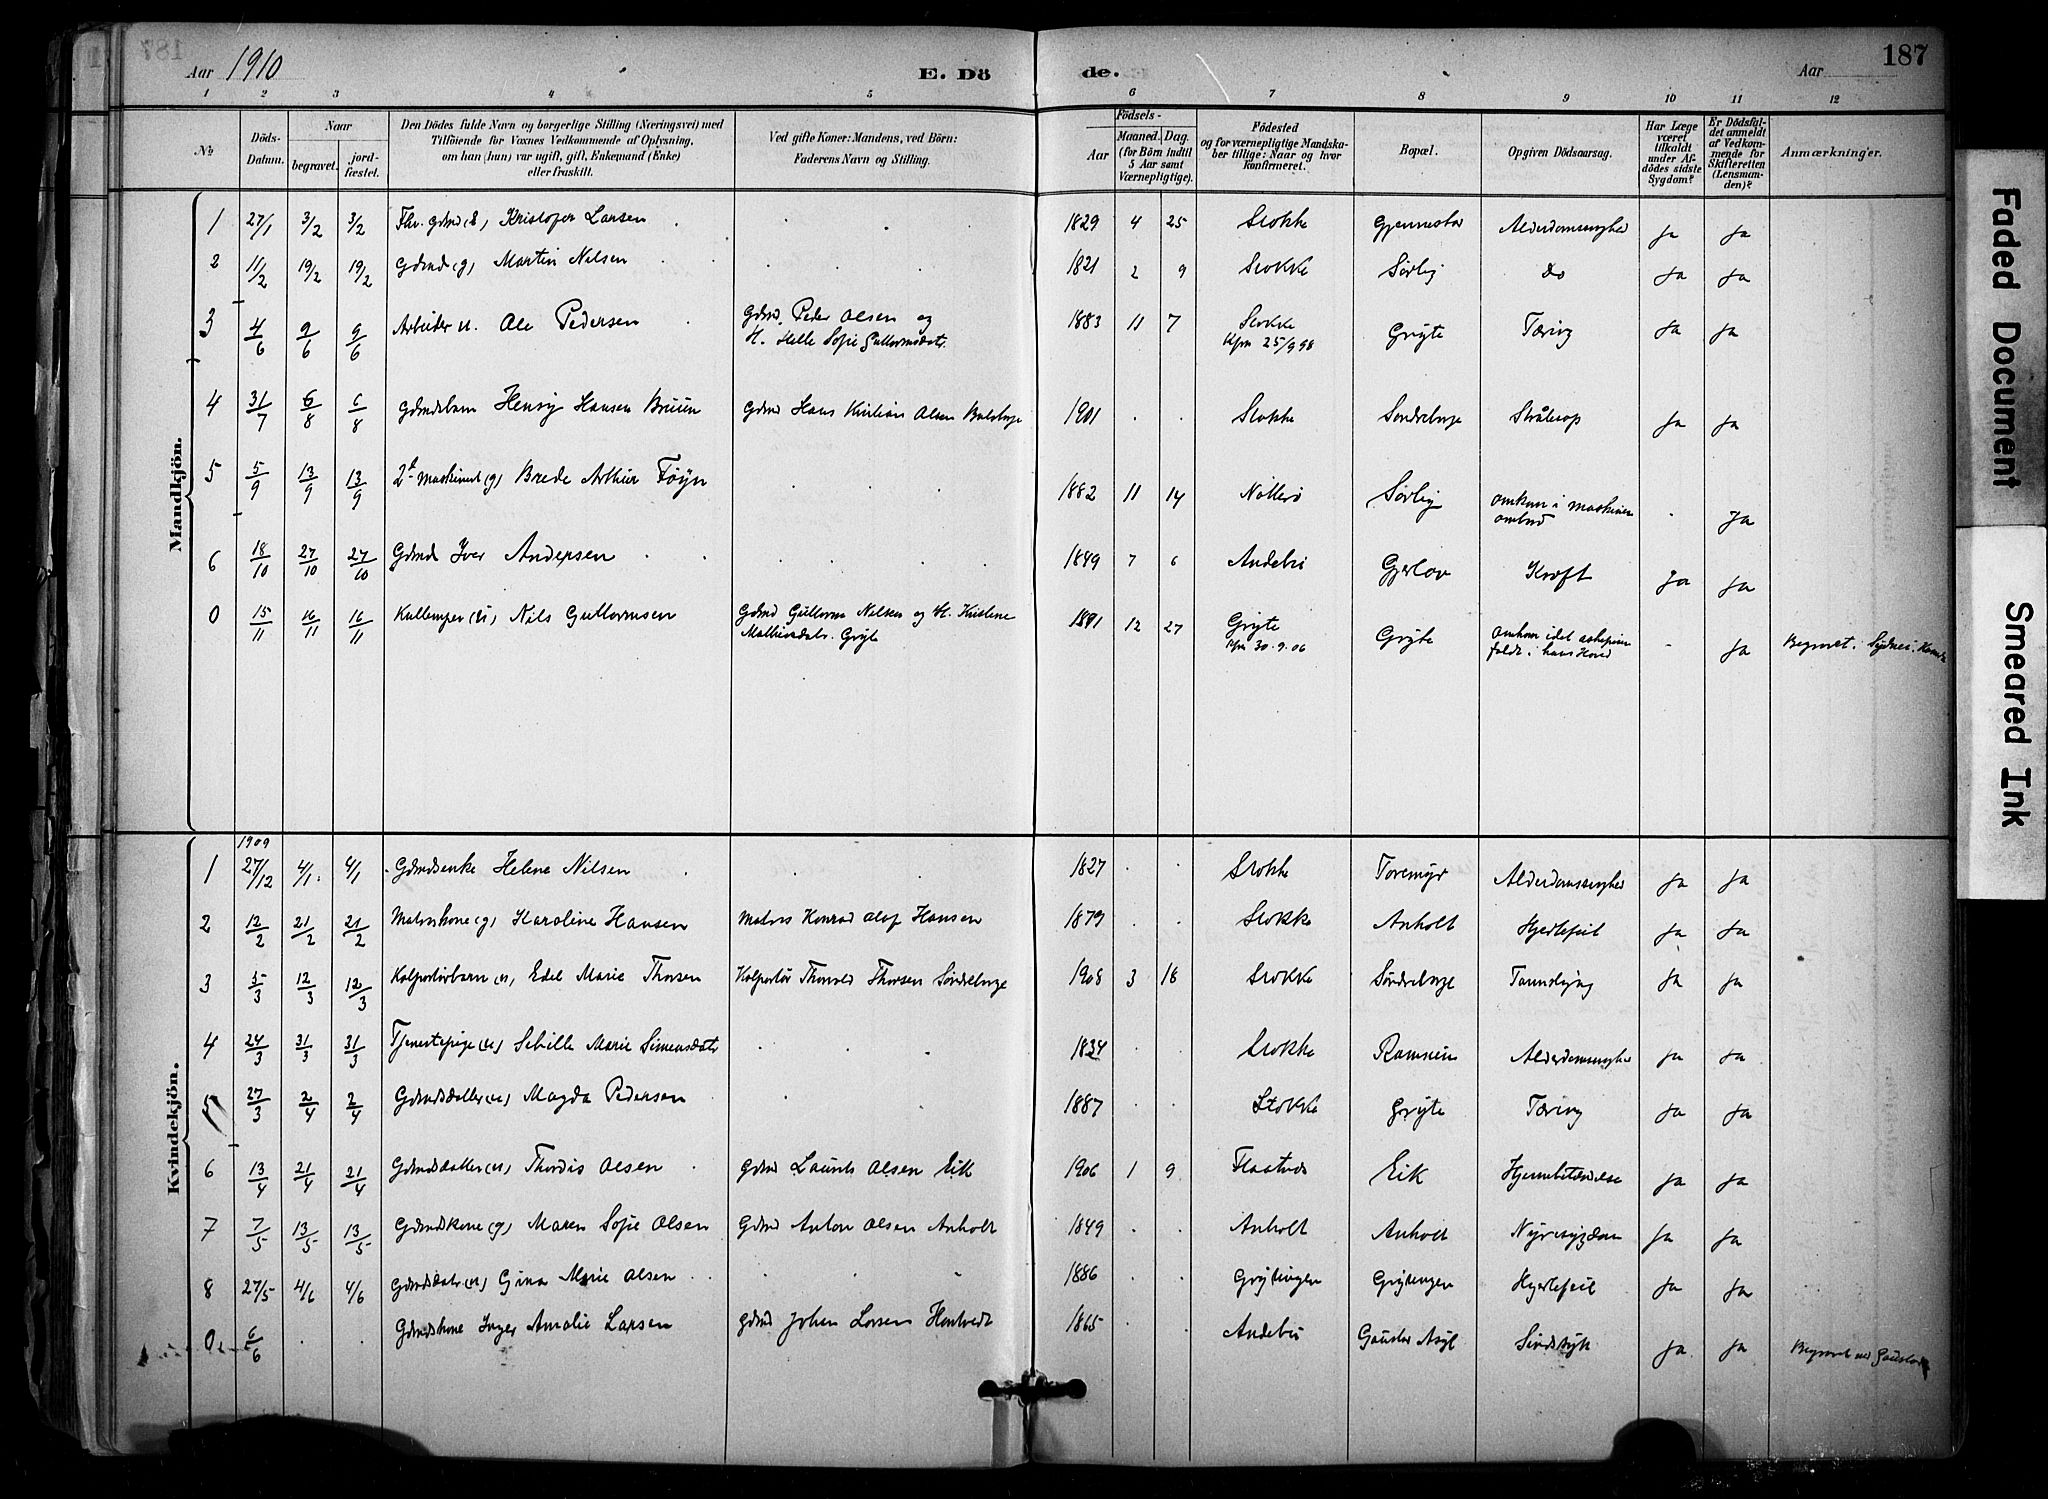 187
Aar 1910
E. Dö
de.
Aar
1 2 3 4 5 6 7 8 9 10 11 12
No
Döds-
Datum.
Naar
begravet.
jord-
fæstet.
Den Dödes fulde Navn og borgerlige Stilling (Næringsvei) med
Tilföiende for Voxnes Vedkommende af Oplysning,
om han (hun) var ugift, gift, Enkemand (Enke)
eller fraskilt.
Ved gifte Koner: Mandens, ved Börn:
Faderens Navn og Stilling.
Födsels-
Aar
Maaned. Dag.
(for Börn indtil
5 Aar samt
Værnepligtige).
Födested
og for værnepligtige Mandska-
ber tillige: Naar og hvor
konfirmeret.
Bopæl.
Opgiven Dödsaarsag.
Har Læge
været
tilkaldt
under Af-
dödes sidste
Sygdom?
Er Dödsfal-
det anmeldt
af Vedkom-
mende for
Skifteretten
(Lensman-
den)?
Anmærkninger.
Mandkjön.
1 27/1 3/2 3/2 Kristofer Larsen 1829 4 25 Stokke Gjennestad Alderdomssvaghed Ja Ja
2 11/2 19/2 19/2 Gdmd (g) Martin Nilsen 1821 2 9 Stokke Sörby Do Ja Ja
3 4/6 9/6 9/6 Arbeider u. Ole Pedersen Gdmd. Peder Olsen og 1883 11 7 Stokke Gryte Tæring Ja Ja
H. Helle Sofie Guttormsdatr. Kfm 25/9 98
4 31/7 6/8 6/8 Gdmdsbarn Henry Hansen Bruun Gdmd Hans Kristian Olsen 1901 Stokke Sondreborge Ja Ja
5 5/9 13/9 13/9 2d Maskinist (g) Brede Arthur Föyn 1882 11 14 Nötterö Sörby omkom i maskinen
ombord - Ja
6 18/10 27/10 27/10 Gdmd Iver Andersen 1849 7 6 Andebu Gjerlov Kræft Ja Ja
0 15/11 16/11 16/11 Kullemper (u) Nils Guttormsen Gdmd Guttorm Nilsen og H. Kristene 1891 12 27 Gryte Gryte omkom idet - Ja Begravet i Sydnei.
Mathiasdatr. Gryte Kfm 30.9.06 faldt i hans Hoved
Kvindekjön.
1909
1 27/12 4/1 4/1 Gdmdsenke Helene Nilsen 1827 Stokke Toremyr Alderdomssvaghed Ja Ja
2 12/2 21/2 21/2 Matroskone (g) Karoline Hansen Matros Konrad Olaf Hansen 1879 Stokke Anholt Hjertefeil Ja Ja
3 5/3 12/3 12/3 Kolportörbarn (u) Edel Marie Thorsen Kolportör Thorvald Thorsen Söndreborge 1908 3 18 Stokke Söndreborge Ja Ja
4 24/3 31/3 31/3 Tjenestepige (u) Sibille Marie Simensdatr 1834 Stokke Ramsum Alderdomssvaghed Ja Ja
5 27/3 2/4 2/4 Gdmdsdatter (u) Magda Pedersen 1887 Stokke Gryte Tæring Ja Ja
6 13/4 21/4 21/4 Gdmdsdatter (u) Thordis Olsen Gdmd Laurits Olsen Eik 1906 1 9 Eik Hjernebetændelse Ja Ja
7 7/5 13/5 13/5 Gdmdskone (g) Maren Sofie Olsen Gdmd Anton Olsen Anholt 1849 Anholt Anholt Nyresygdom Ja Ja
8 27/5 4/6 4/6 Gdmdsdatr (u) Gina Marie Olsen 1886 Grytingen Grytingen Hjertefeil Ja Ja
0 6/6 Gdmdskone Inger Amalie Larsen Gdmd Johan Larsen Hontvedt 1865 Andebu Gaustad Asyl Sindssyk Ja Ja Begravet ved Gaustad
Faded Document
Smeared Ink